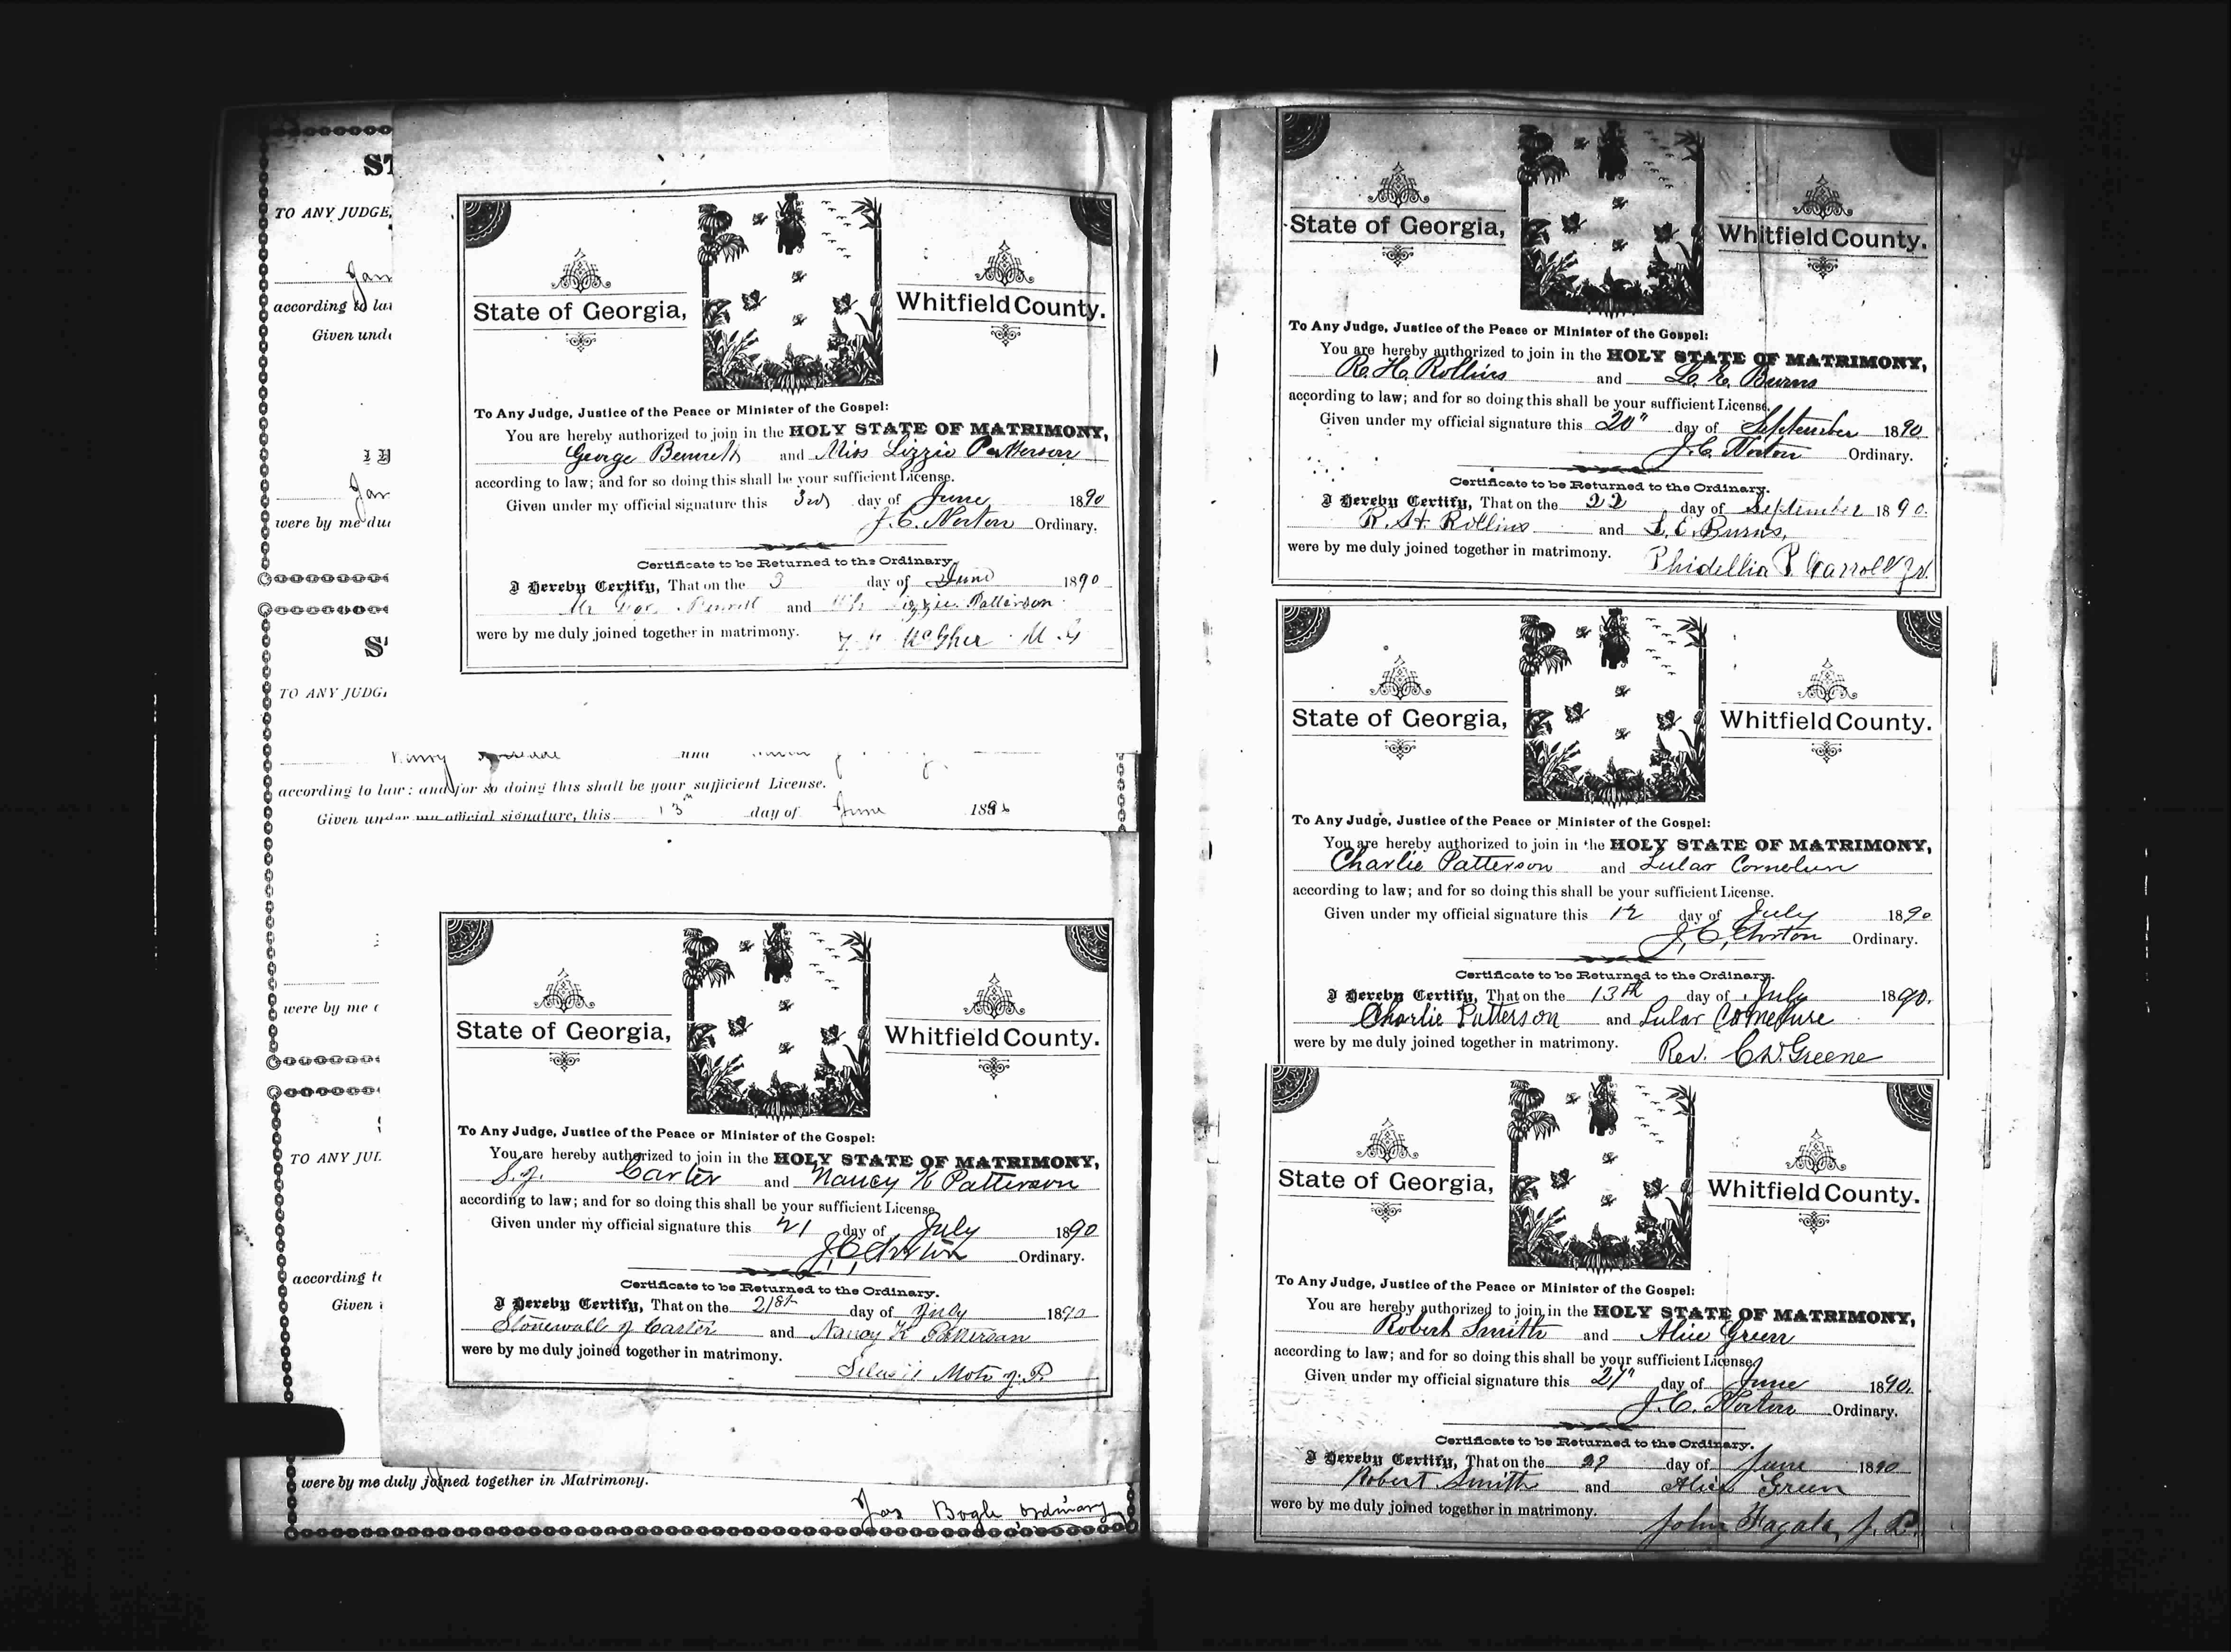 ST
TO ANY JUDGE,
Jam
according to la
Given unde
Jam
were by me du
S
TO ANY JUDG
State of Georgia, Whitfield County.
To Any Judge, Justice of the Peace or Minister of the Gospel:
You are hereby authorized to join in the HOLY STATE OF MATRIMONY,
George Bennett and Miss Lizzie Patterson
according to law; and for so doing this shall be your sufficient License.
Given under my official signature this 3rd day of June 1890
J. C. Norton Ordinary.
Certificate to be Returned to the Ordinary.
I Hereby Certify, That on the 3 day of June 1890
Mr Geo. Bennett and Lizzie Patterson
were by me duly joined together in matrimony. McGher M. G
and
according to law: and for so doing this shall be your sufficient License.
Given under my official signature, this 13 day of June 188
were by me
TO ANY JU
according t
Given
State of Georgia, Whitfield County.
To Any Judge, Justice of the Peace or Minister of the Gospel:
You are hereby authorized to join in the HOLY STATE OF MATRIMONY,
S. J. Carter and Nancy K Patterson
according to law; and for so doing this shall be your sufficient License.
Given under my official signature this 21 day of July 1890
J. C. Norton Ordinary.
Certificate to be Returned to the Ordinary.
I Hereby Certify, That on the 21st day of July 1890
Stonewall J Carter and Nancy K Patterson
were by me duly joined together in matrimony.
J. P.
were by me duly joined together in Matrimony.
Jas Bogle, Ordinary
State of Georgia, Whitfield County.
To Any Judge, Justice of the Peace or Minister of the Gospel:
You are hereby authorized to join in the HOLY STATE OF MATRIMONY,
R. H. Rollins and L. E. Burns
according to law; and for so doing this shall be your sufficient License.
Given under my official signature this 20" day of September 1890
J. C. Norton Ordinary.
Certificate to be Returned to the Ordinary.
I Hereby Certify, That on the 22 day of September 1890.
R. H. Rollins and L. E. Burns,
were by me duly joined together in matrimony. Phidellia P. Carroll Jr.
State of Georgia, Whitfield County.
To Any Judge, Justice of the Peace or Minister of the Gospel:
You are hereby authorized to join in the HOLY STATE OF MATRIMONY,
Charlie Patterson and Lular Cornelun
according to law; and for so doing this shall be your sufficient License.
Given under my official signature this 12 day of July 1890
J. C. Norton Ordinary.
Certificate to be Returned to the Ordinary.
I Hereby Certify, That on the 13th day of July 1890.
Charlie Patterson and Lular
were by me duly joined together in matrimony. Rev. C. W. Greene
State of Georgia, Whitfield County.
To Any Judge, Justice of the Peace or Minister of the Gospel:
You are hereby authorized to join in the HOLY STATE OF MATRIMONY,
Robert Smith and Alice Green
according to law; and for so doing this shall be your sufficient License.
Given under my official signature this 27" day of June 1890.
J. C. Norton Ordinary.
Certificate to be Returned to the Ordinary.
I Hereby Certify, That on the 27 day of June 1890
Robert Smith and Alice Green
were by me duly joined together in matrimony.
John Fagala, J. P.